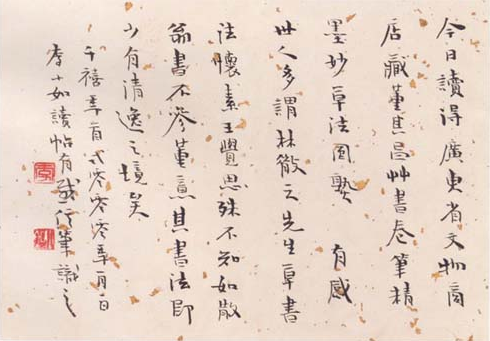 今日讀得廣東省文物商
店藏董其昌艸書卷筆精
墨妙草法圓熟 有感
世人多謂林散之先生草書
法懷素王覺思殊不知如散
翁書不參董意其書法即
少有清逸之境矣
千禧年首弍零零零年一月一日
李小如讀帖有感信筆識之